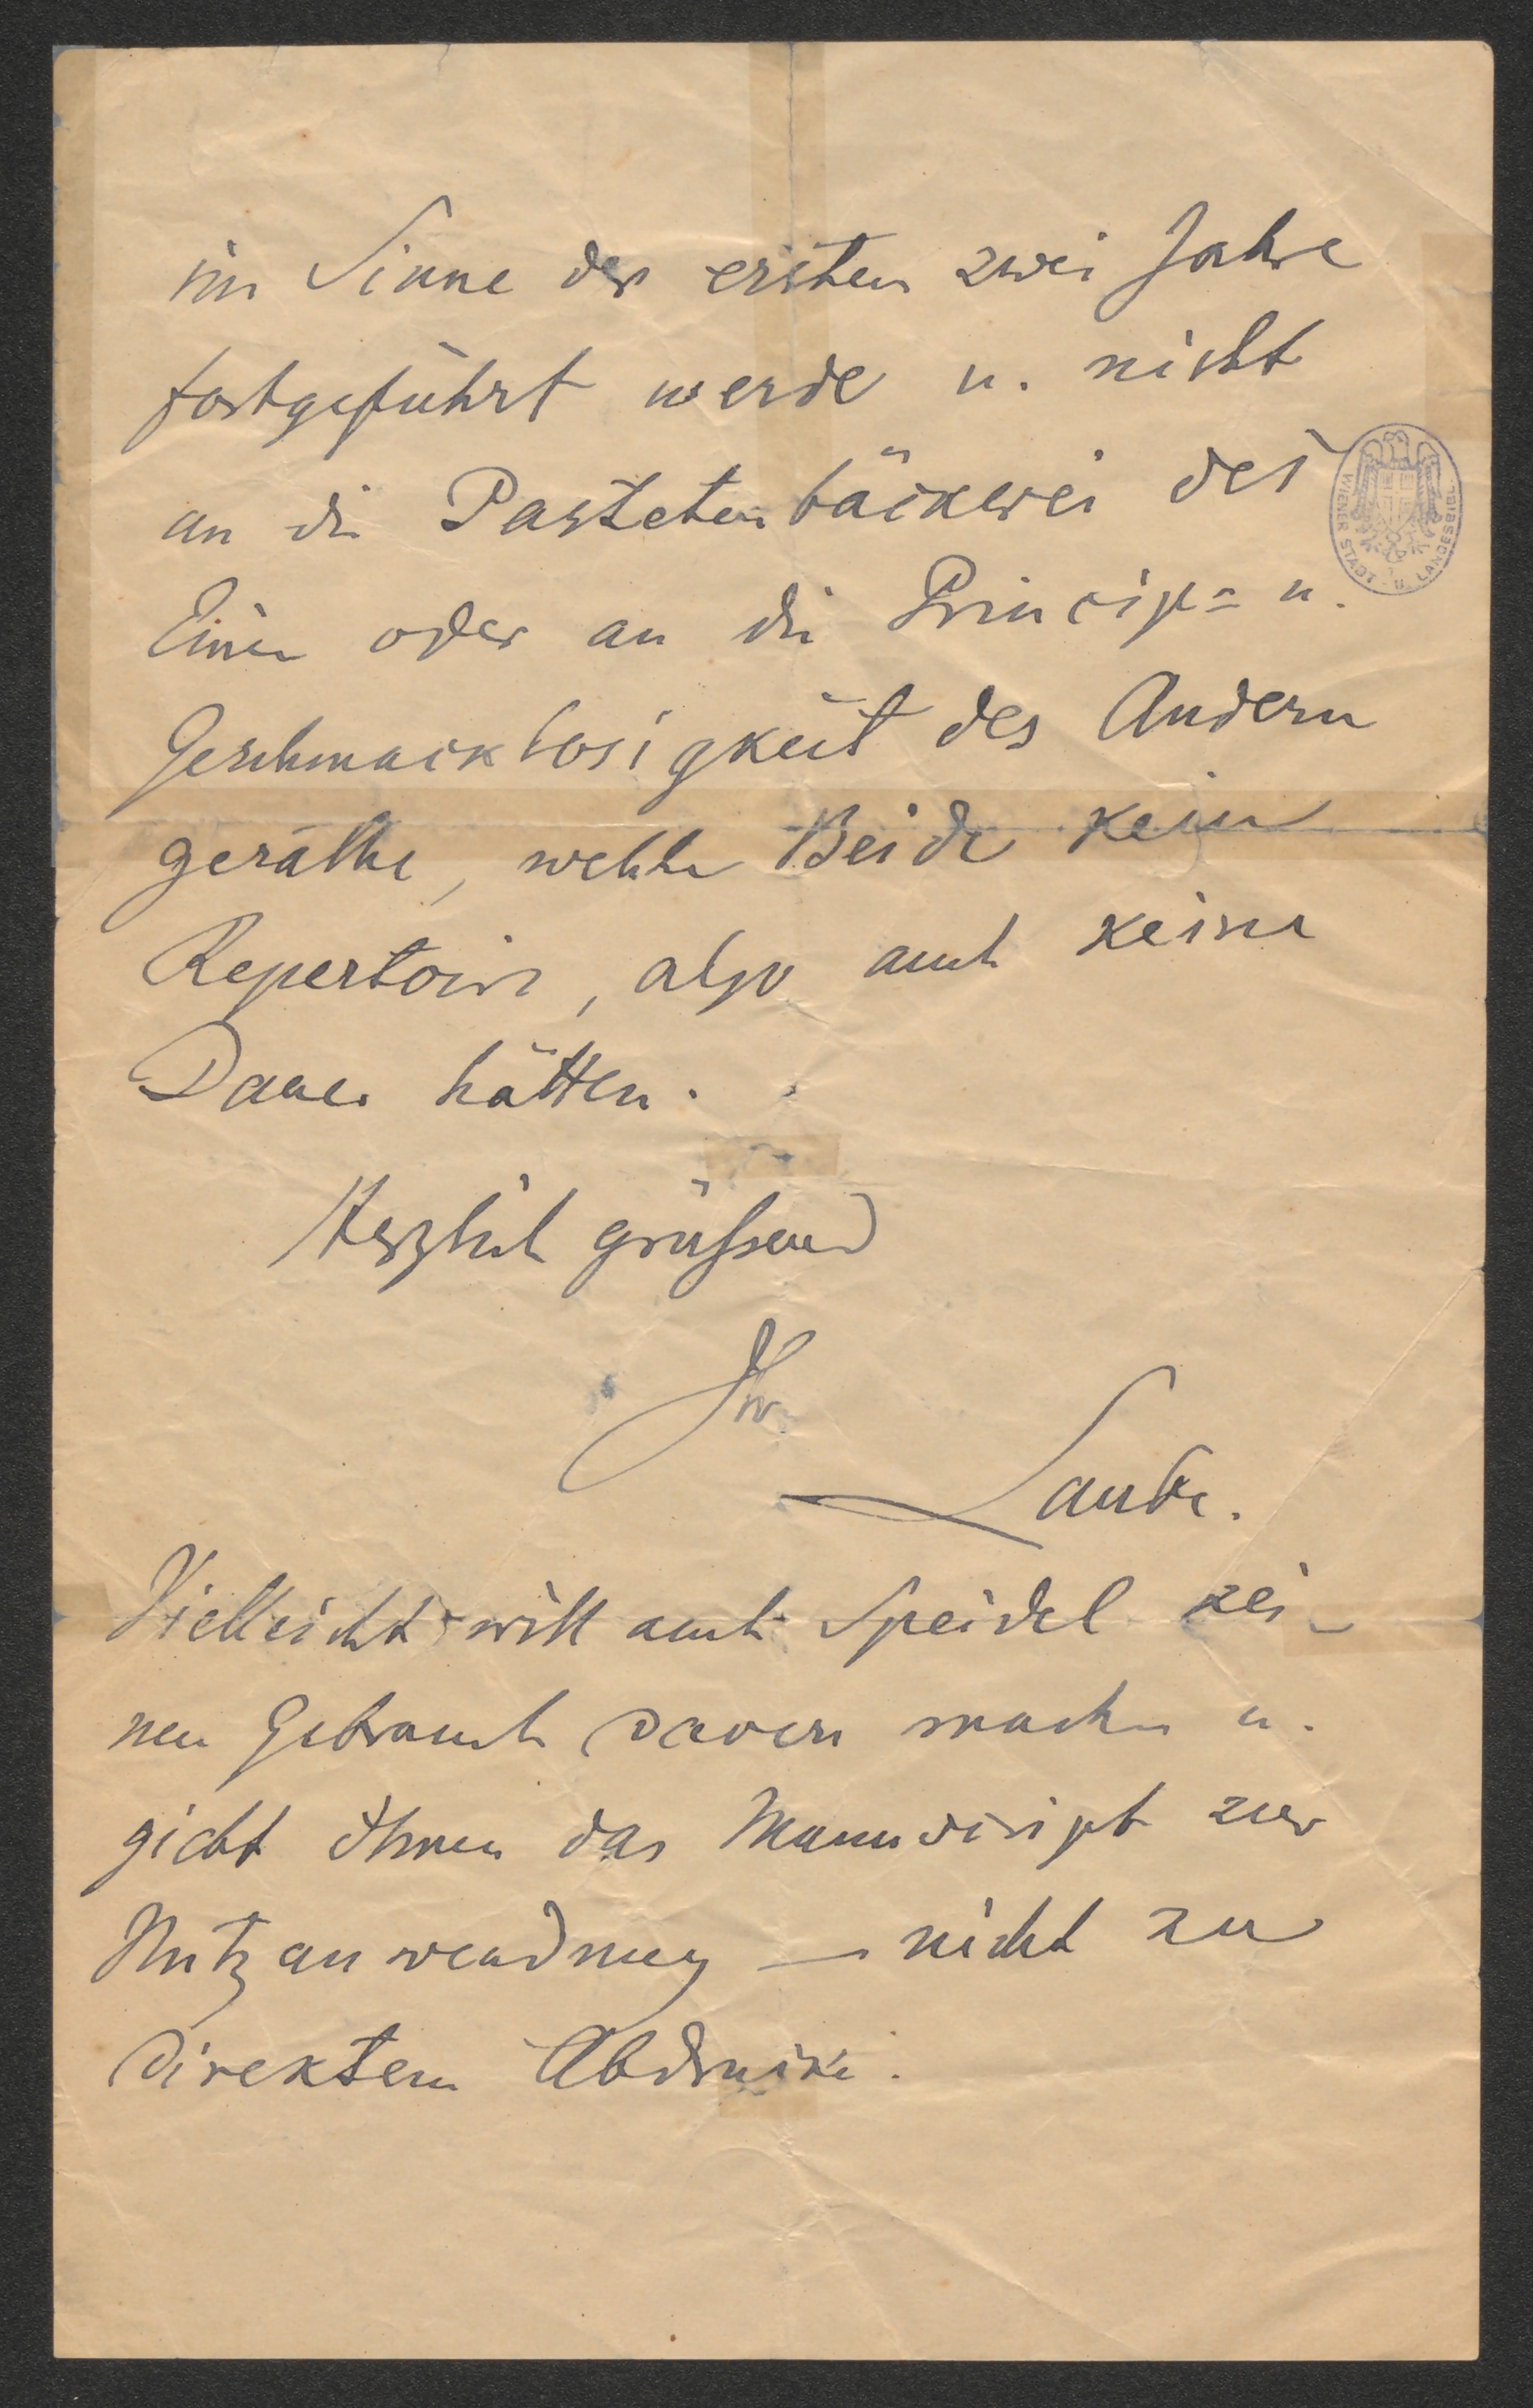 im Sinne der ersten zwei Jahre
fortgeführt werde u. nicht
an die Pastetenbäckerei des
Einen oder an die Princip= u.
Geschmacklosigkeit des Andern
gerathe, welche Beide kein
Repertoire, also auch keine
Dauer hätten.
WIENER STADT- u. LANDESBIBL.
Herzlich grüßend
Ihr
Laube.
Vielleicht will auch Speidel kei-
nen Gebrauch davon machen u.
giebt Ihnen das Manuscript zur
Nutzanwendung – nicht zu
direktem Abdrucke.